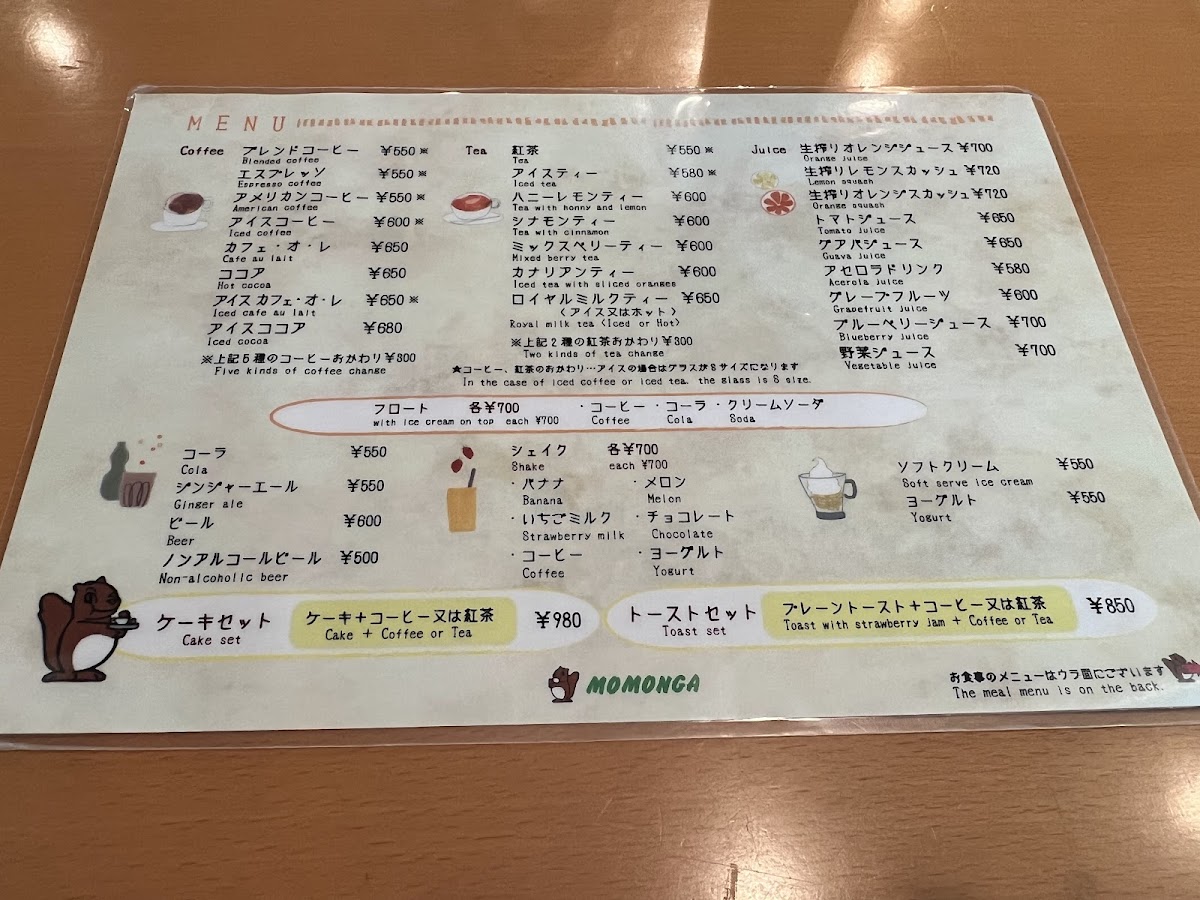 MENU
Coffee
ブレンドコーヒー ¥550※
Blended coffee
エスプレッソ ¥550※
Espresso coffee
アメリカンコーヒー ¥550※
American coffee
アイスコーヒー ¥600※
Iced coffee
カフェ・オ・レ ¥650
Cafe au lait
ココア ¥650
Hot cocoa
アイス カフェ・オ・レ ¥650※
Iced cafe au lait
アイスココア ¥680
Iced cocoa
※上記5種のコーヒーおかわり¥300
Five kinds of coffee change
Tea
紅茶 ¥550※
Tea
アイスティー ¥580※
Iced tea
ハニーレモンティー ¥600
Tea with honny and lemon
シナモンティー ¥600
Tea with cinnamon
ミックスベリーティー ¥600
Mixed berry tea
カナリアンティー ¥600
Iced tea with sliced oranges
ロイヤルミルクティー ¥650
(アイス又はホット)
Royal milk tea (Iced or Hot)
※上記2種の紅茶おかわり¥300
Two kinds of tea change
Juice
生搾りオレンジジュース ¥700
Orange juice
生搾りレモンスカッシュ ¥720
Lemon squash
生搾りオレンジスカッシュ ¥720
Orange squash
トマトジュース ¥650
Tomato juice
グアバジュース ¥650
Guava juice
アセロラドリンク ¥580
Acerola juice
グレープフルーツ ¥600
Grapefruit juice
ブルーベリージュース ¥700
Blueberry juice
野菜ジュース ¥700
Vegetable juice
★コーヒー、紅茶のおかわり…アイスの場合はグラスがSサイズになります
In the case of iced coffee or iced tea, the glass is S size.
フロート 各¥700 ・コーヒー ・コーラ ・クリームソーダ
with ice cream on top each ¥700 Coffee Cola Soda
コーラ ¥550
Cola
ジンジャーエール ¥550
Ginger ale
ビール ¥600
Beer
ノンアルコールビール ¥500
Non-alcoholic beer
シェイク 各¥700
Shake each ¥700
・バナナ ・メロン
Banana Melon
・いちごミルク ・チョコレート
Strawberry milk Chocolate
・コーヒー ・ヨーグルト
Coffee Yogurt
ソフトクリーム ¥550
Soft serve ice cream
ヨーグルト ¥550
Yogurt
ケーキセット ケーキ+コーヒー又は紅茶 ¥980
Cake set Cake + Coffee or Tea
トーストセット プレーントースト+コーヒー又は紅茶 ¥850
Toast set Toast with strawberry jam + Coffee or Tea
MOMONGA
お食事のメニューはウラ面にございます
The meal menu is on the back.